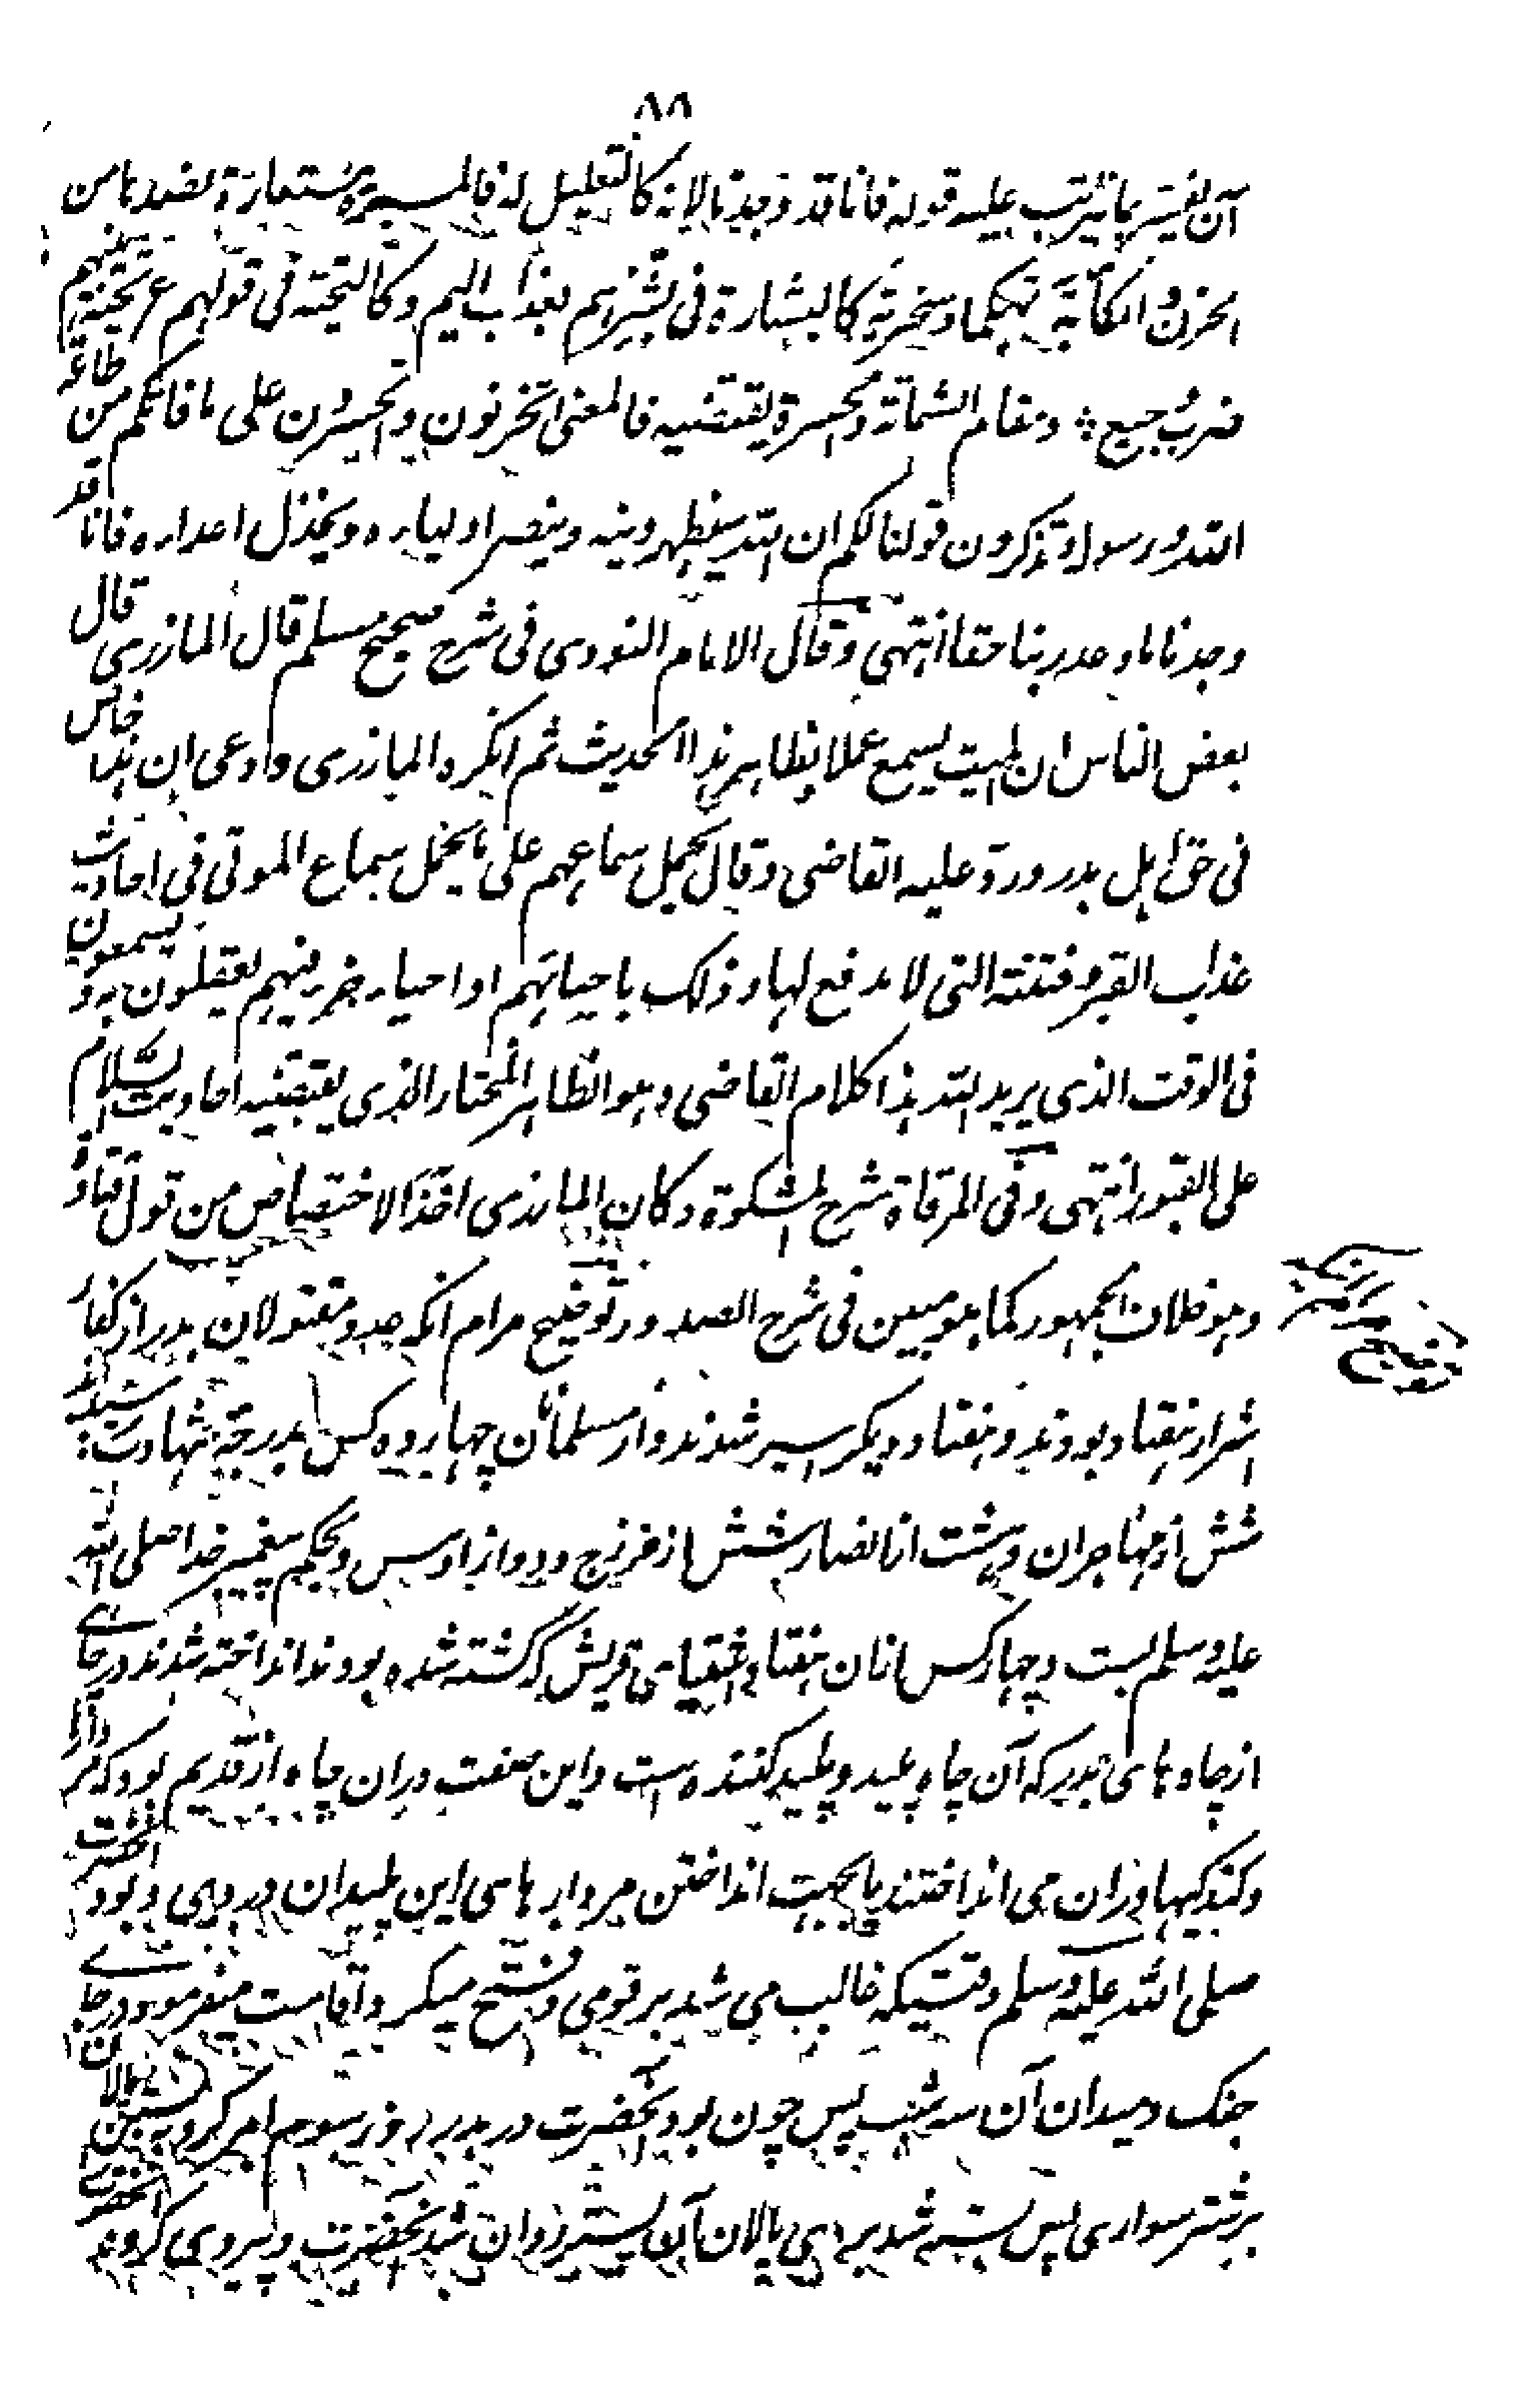 ٨٨
آن یفسر بما یترتب علیه قوله فانا قد وجدنا لانه کالتعلیل له فالمسرة مستعارة لضدها من
الحزن و الکآبة تهکما و سخریة کالبشارة فی بشرهم بعذاب الیم و کالتحیة فی قولهم ع تحیة بینهم
ضرب وجیع ٭ و مقام الشماتة و الحسرة یقتضیه فالمعنی اتحزنون و تتحسرون علی ما فاتکم من طاعة
الله و رسوله و تذکرون قولنا لکم ان الله سیظهر دینه و ینصر اولیاءه و یخذل اعداءه فانا قد
وجدنا ما وعد ربنا حقا انتهی وقال الامام النووی فی شرح صحیح مسلم قال المازری قال
بعض الناس ان المیت یسمع عملا بظاهر هذا الحدیث ثم انکره المازری وادعی ان هذا خاص
فی حق اهل بدر ورد علیه القاضی و قال یحمل سماعهم علی ما یحمل سماع الموتی فی احادیث
عذاب القبر و فتنته التی لا مدفع لها و ذلک باحیائهم او احیاء جزء منهم یعقلون به و یسمعون
فی الوقت الذی یرید الله هذا کلام القاضی و هو الظاهر المختار الذی یقتضیه احادیث السلام
علی القبور انتهی و فی المرقاة شرح المشکوة و کان المازری اخذ الاختصاص من قول قتادة
و هو خلاف الجمهور کما هو مبین فی شرح الصدور توضیح مرام آنکه عدد مقتولان بدر از کفار
توضیح مرام آنکه
اشرار هفتاد بودند و هفتاد دیگر اسیر شدند و از مسلمانان چهارده کس بدرجۀ شهادت رسیدند
شش از مهاجران و هشت از انصار شش از خزرج و دو از اوس و بحکم پیغمبر خدا صلی الله
علیه وسلم بست و چهار کس از ان هفتاد اشقیای قریش که کشته شده بودند انداخته شدند در چاهے
از چاه های بدر که آن چاه پلید و پلید کننده است و این صفت دران چاه از قدیم بود که مردار
و گندگیها دران می انداختند یا بجهت انداختن مردار های این پلیدان در وی و بود آنحضرت
صلی الله علیه وسلم وقتیکه غالب می شد بر قومی و فتح میکرد اقامت میفرمود در جاے
جنگ و میدان آن سه شب پس چون بود آنحضرت در بدر روز سوم امر کرد به بستن پالان
بر شتر سواری پس بسته شد بروی پالان آن پستر روان شد آنحضرت و پیروی کردند آنحضرت